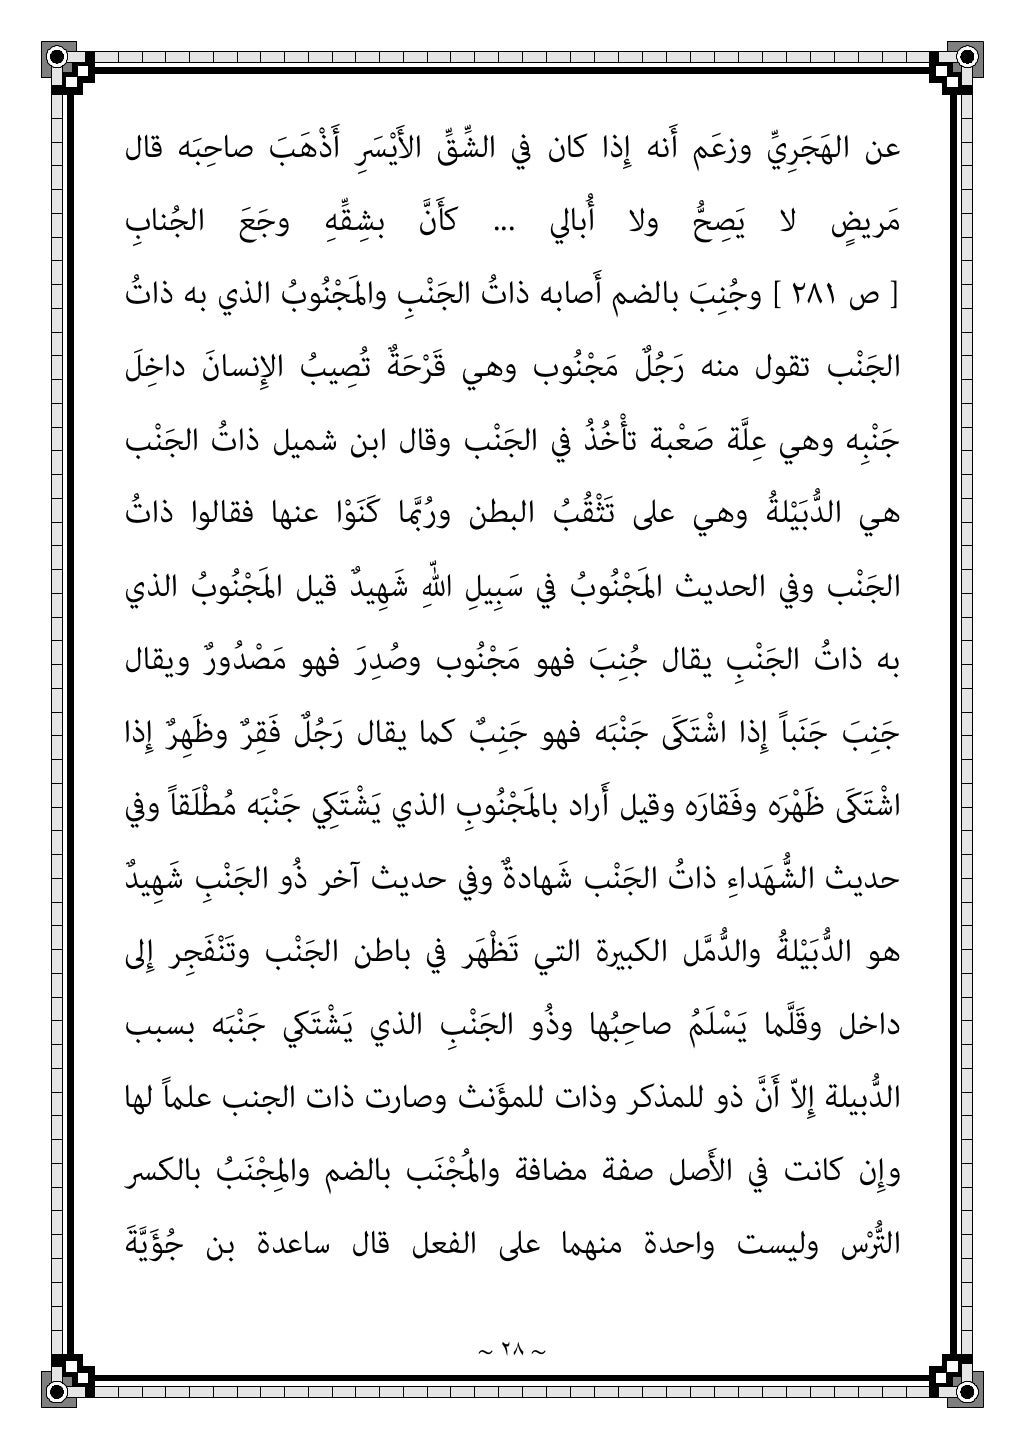 عن الهَجَرِيِّ وزعَم أَنه إِذا كان في الشِّقِّ الأَيْسَرِ أَذْهَبَ صاحِبَه قال
مَريضٍ لا يَصِحُّ ولا أُبالي ... كأَنَّ بشِقِّهِ وجَعَ الجُنابِ
[ ص ٢٨١ ] وجُنِبَ بالضم أَصابه ذاتُ الجَنْبِ والمَجْنُوبُ الذي به ذاتُ
الجَنْب تقول منه رَجُلٌ مَجْنُوب وهي قَرْحَةٌ تُصِيبُ الإِنسانَ داخِلَ
جَنْبِه وهي عِلَّة صَعْبة تأْخُذُ في الجَنْب وقال ابن شميل ذاتُ الجَنْب
هي الدُّبَيْلةُ وهي على تَثْقُبُ البطن ورُبَّما كَنَوْا عنها فقالوا ذاتُ
الجَنْب وفي الحديث المَجْنُوبُ في سَبِيلِ اللّهِ شَهِيدٌ قيل المَجْنُوبُ الذي
به ذاتُ الجَنْبِ يقال جُنِبَ فهو مَجْنُوب وصُدِرَ فهو مَصْدُورٌ ويقال
جَنِبَ جَنَباً إِذا اشْتَكَى جَنْبَه فهو جَنِبٌ كما يقال رَجُلٌ فَقِرٌ وظَهِرٌ إِذا
اشْتَكَى ظَهْرَه وفَقارَه وقيل أَراد بالمَجْنُوبِ الذي يَشْتَكِي جَنْبَه مُطْلَقاً وفي
حديث الشُّهَداءِ ذاتُ الجَنْب شَهادةٌ وفي حديث آخر ذُو الجَنْبِ شَهِيدٌ
هو الدُّبَيْلةُ والدُّمَّل الكبيرة التي تَظْهَر في باطن الجَنْب وتَنْفَجِر إِلى
داخل وقَلَّما يَسْلَمُ صاحِبُها وذُو الجَنْبِ الذي يَشْتَكي جَنْبَه بسبب
الدُّبيلة إِلاّ أَنَّ ذو للمذكر وذات للمؤَنث وصارت ذات الجنب علماً لها
وإِن كانت في الأَصل صفة مضافة والمُجْنَب بالضم والمِجْنَبُ بالكسر
التُّرْس وليست واحدة منهما على الفعل قال ساعدة بن جُؤَيَّةَ
~ ٢٨ ~